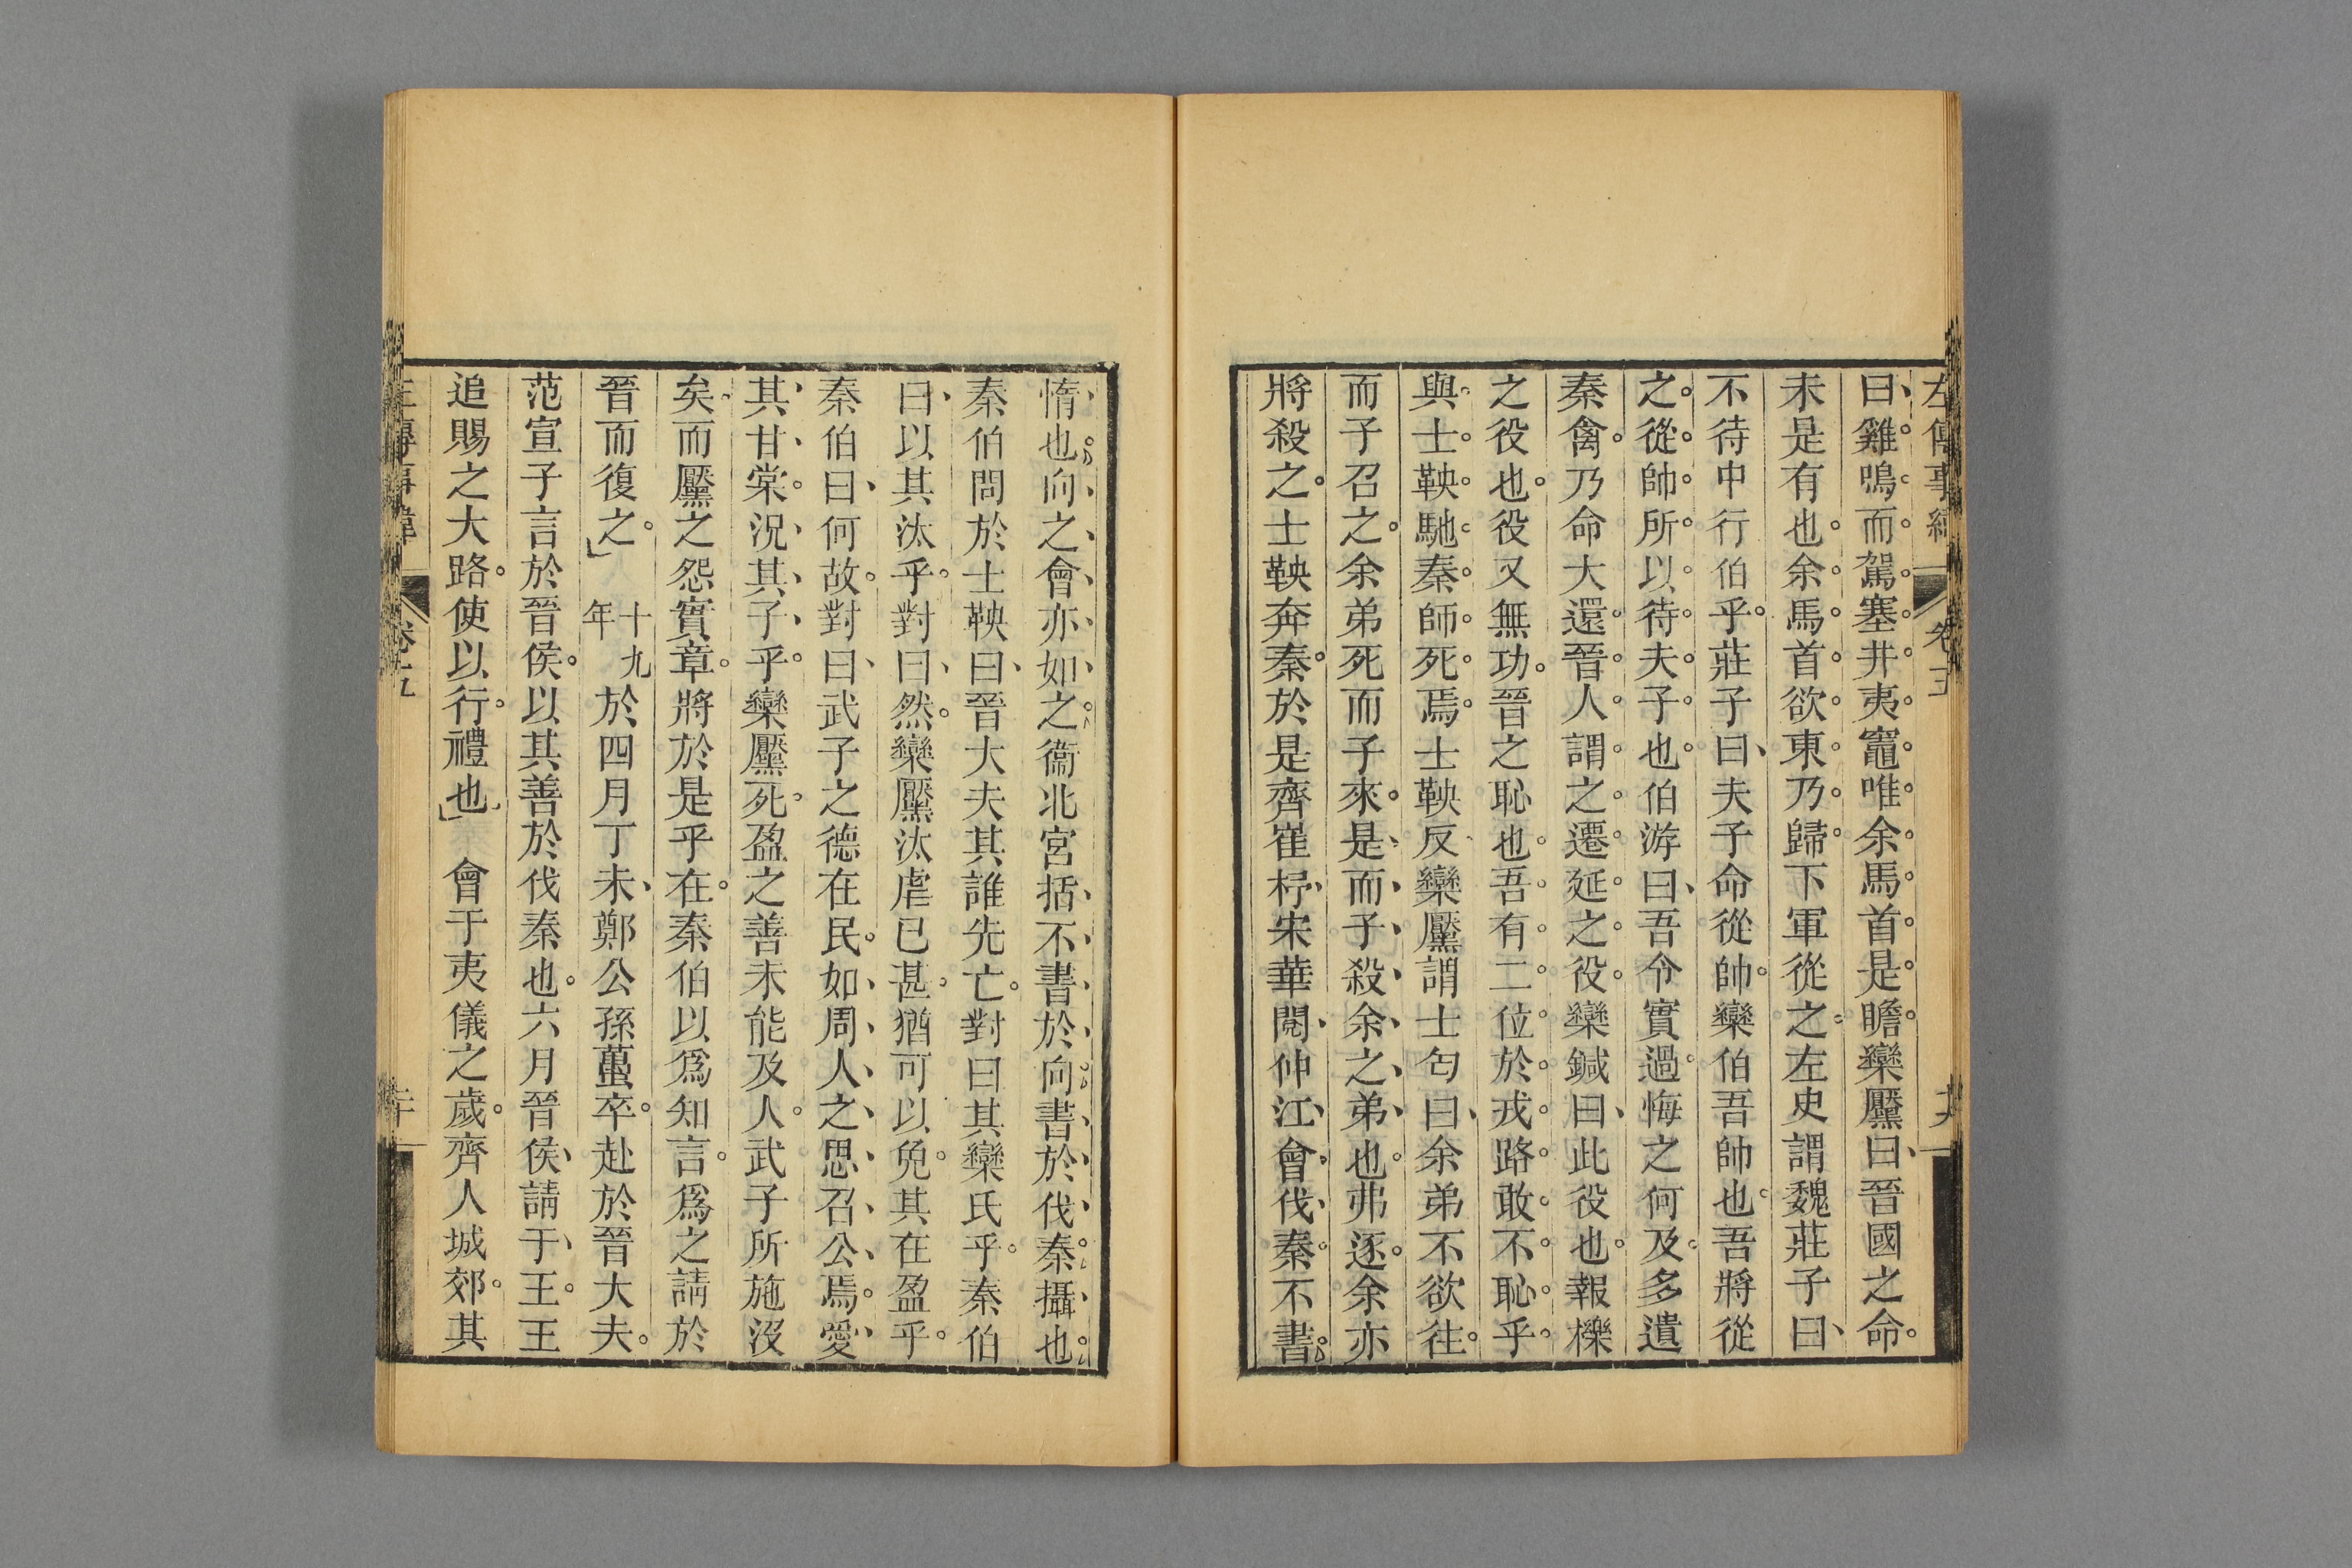 曰雞鳴而駕塞井夷竈唯余馬首是瞻欒黶曰晉國之命
未是有也余馬首欲東乃歸下軍從之左史謂魏莊子曰
不待中行伯乎莊子曰夫子命從帥欒伯吾帥也吾將從
之從帥所以待夫子也伯游曰吾令實過悔之何及多遺
秦禽乃命大還晉人謂之遷延之役欒鍼曰此役也報櫟
之役也役又無功晉之恥也吾有二位於戎路敢不恥乎
與士鞅馳秦師死焉士鞅反欒黶謂士匄曰余弟不欲往
而子召之余弟死而子來是而子殺余之弟也弗逐余亦
將殺之士鞅奔秦於是齊崔杼宋華閱仲江會伐秦不書
惰也向之會亦如之衞北宮括不書於向書於伐秦攝也
秦伯問於士鞅曰晉大夫其誰先亡對曰其欒氏乎秦伯
曰以其汰乎對曰然欒黶汰虐已甚猶可以免其在盈乎
秦伯曰何故對曰武子之德在民如周人之思召公焉愛
其甘棠況其子乎欒黶死盈之善未能及人武子所施沒
矣而黶之怨實章將於是乎在秦伯以爲知言爲之請於
晉而復之 十九年 於四月丁未鄭公孫蠆卒赴於晉大夫
范宣子言於晉侯以其善於伐秦也六月晉侯請于王王
追賜之大路使以行禮也 會于夷儀之歲齊人城郟其